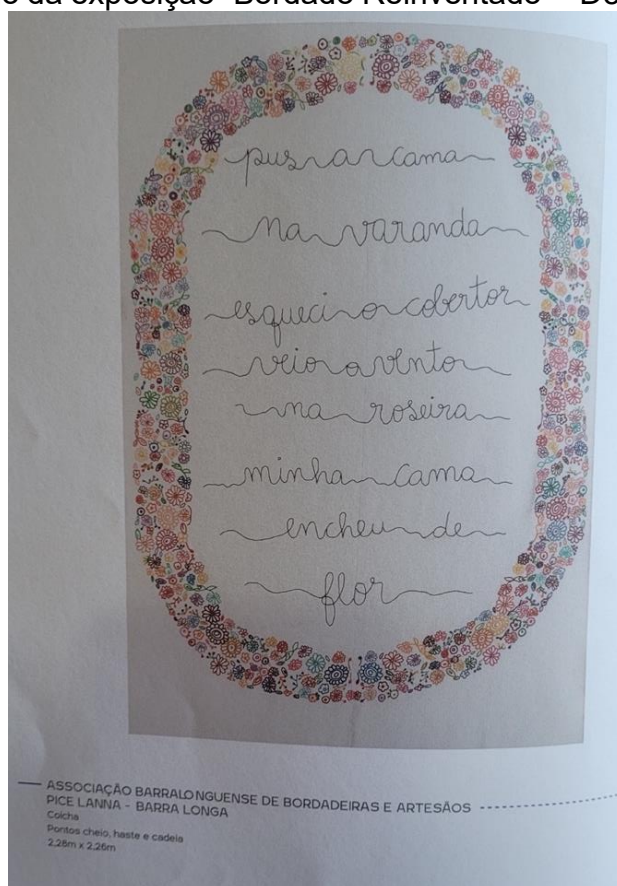 o da exposição "Bordado Reinventado"
pus a cama
na varanda
esqueci o cobertor
veio o vento
na roseira
minha cama
encheu de
flor
ASSOCIAÇÃO BARRALONGUENSE DE BORDADEIRAS E ARTESÃOS
PICE LANNA - BARRA LONGA
Colcha
Pontos cheio, haste e cadeia
2,28m x 2,26m